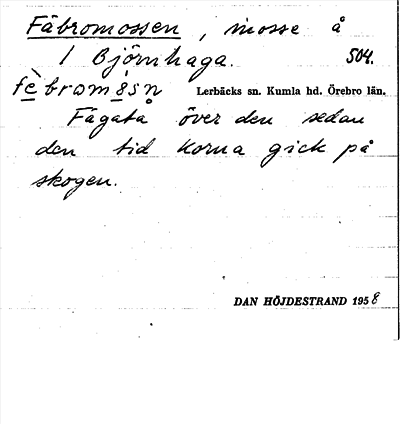 Fäbromossen, mosse å
1 Björnhaga. 504.
fè̱brωmå̱sṇ
Lerbäcks sn. Kumla hd. Örebro län.
Fägata över den sedan
den tid korna gick på
skogen.
DAN HÖJDESTRAND 1958